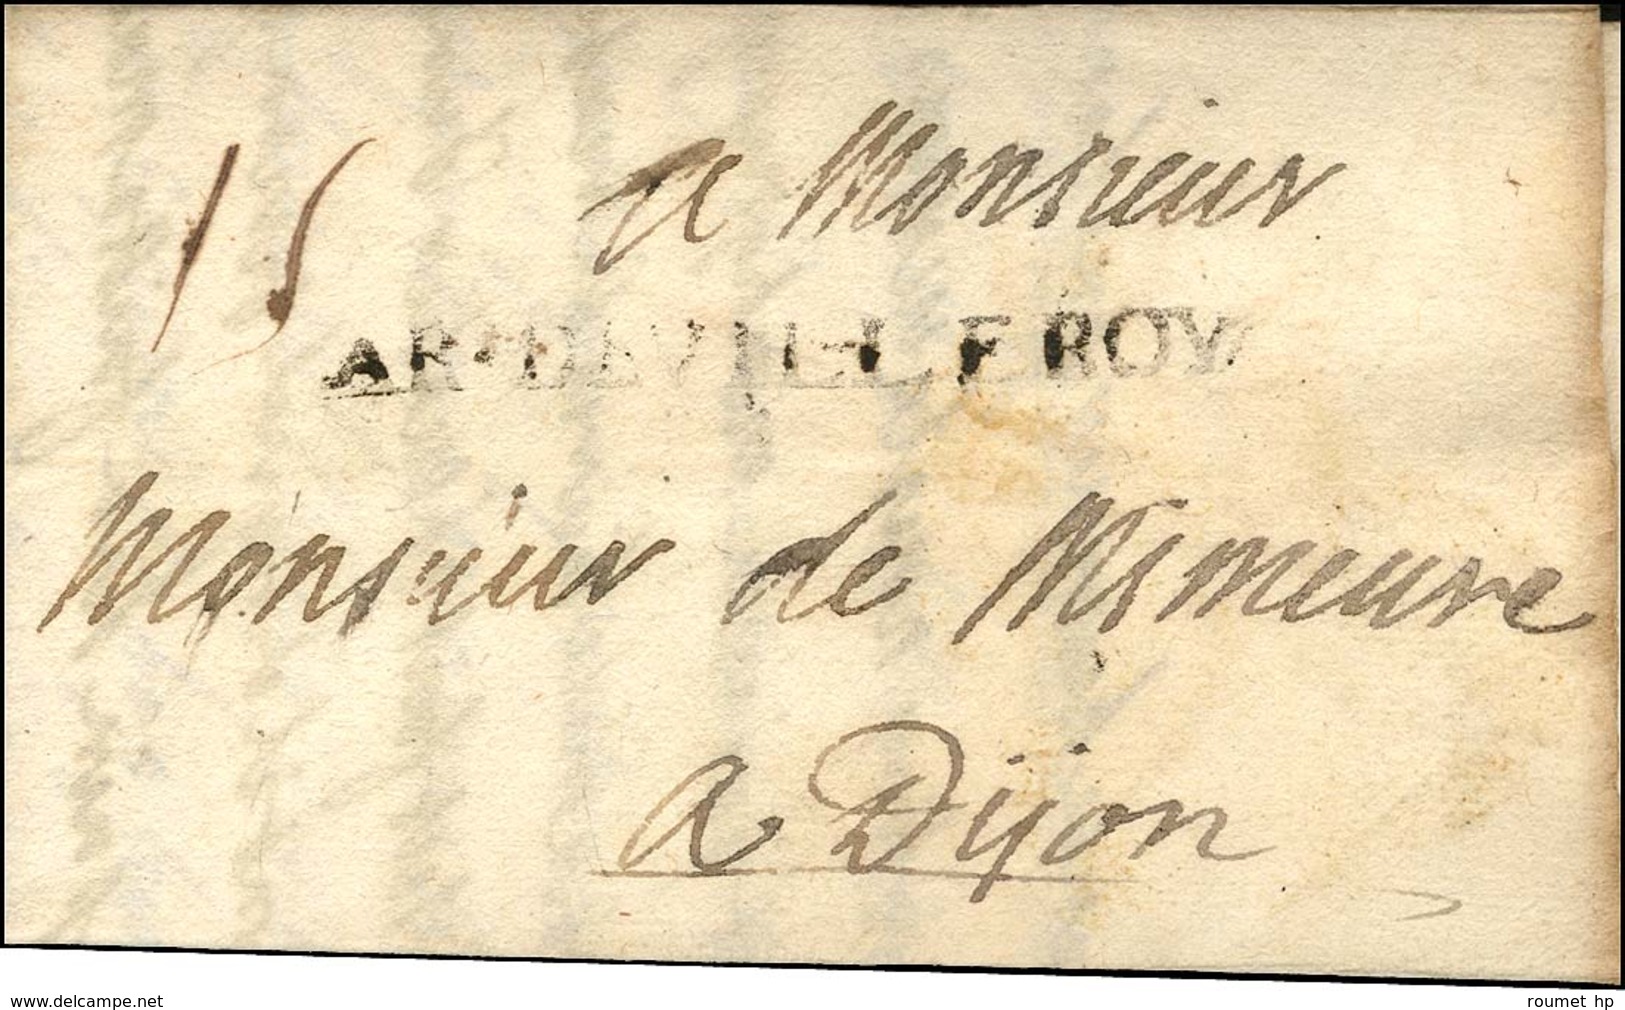 15
a Monsieur
AR·DEVILLEROY
Monsieur de Mimeure
a Dijon
www.delcampe.net
roumet hp